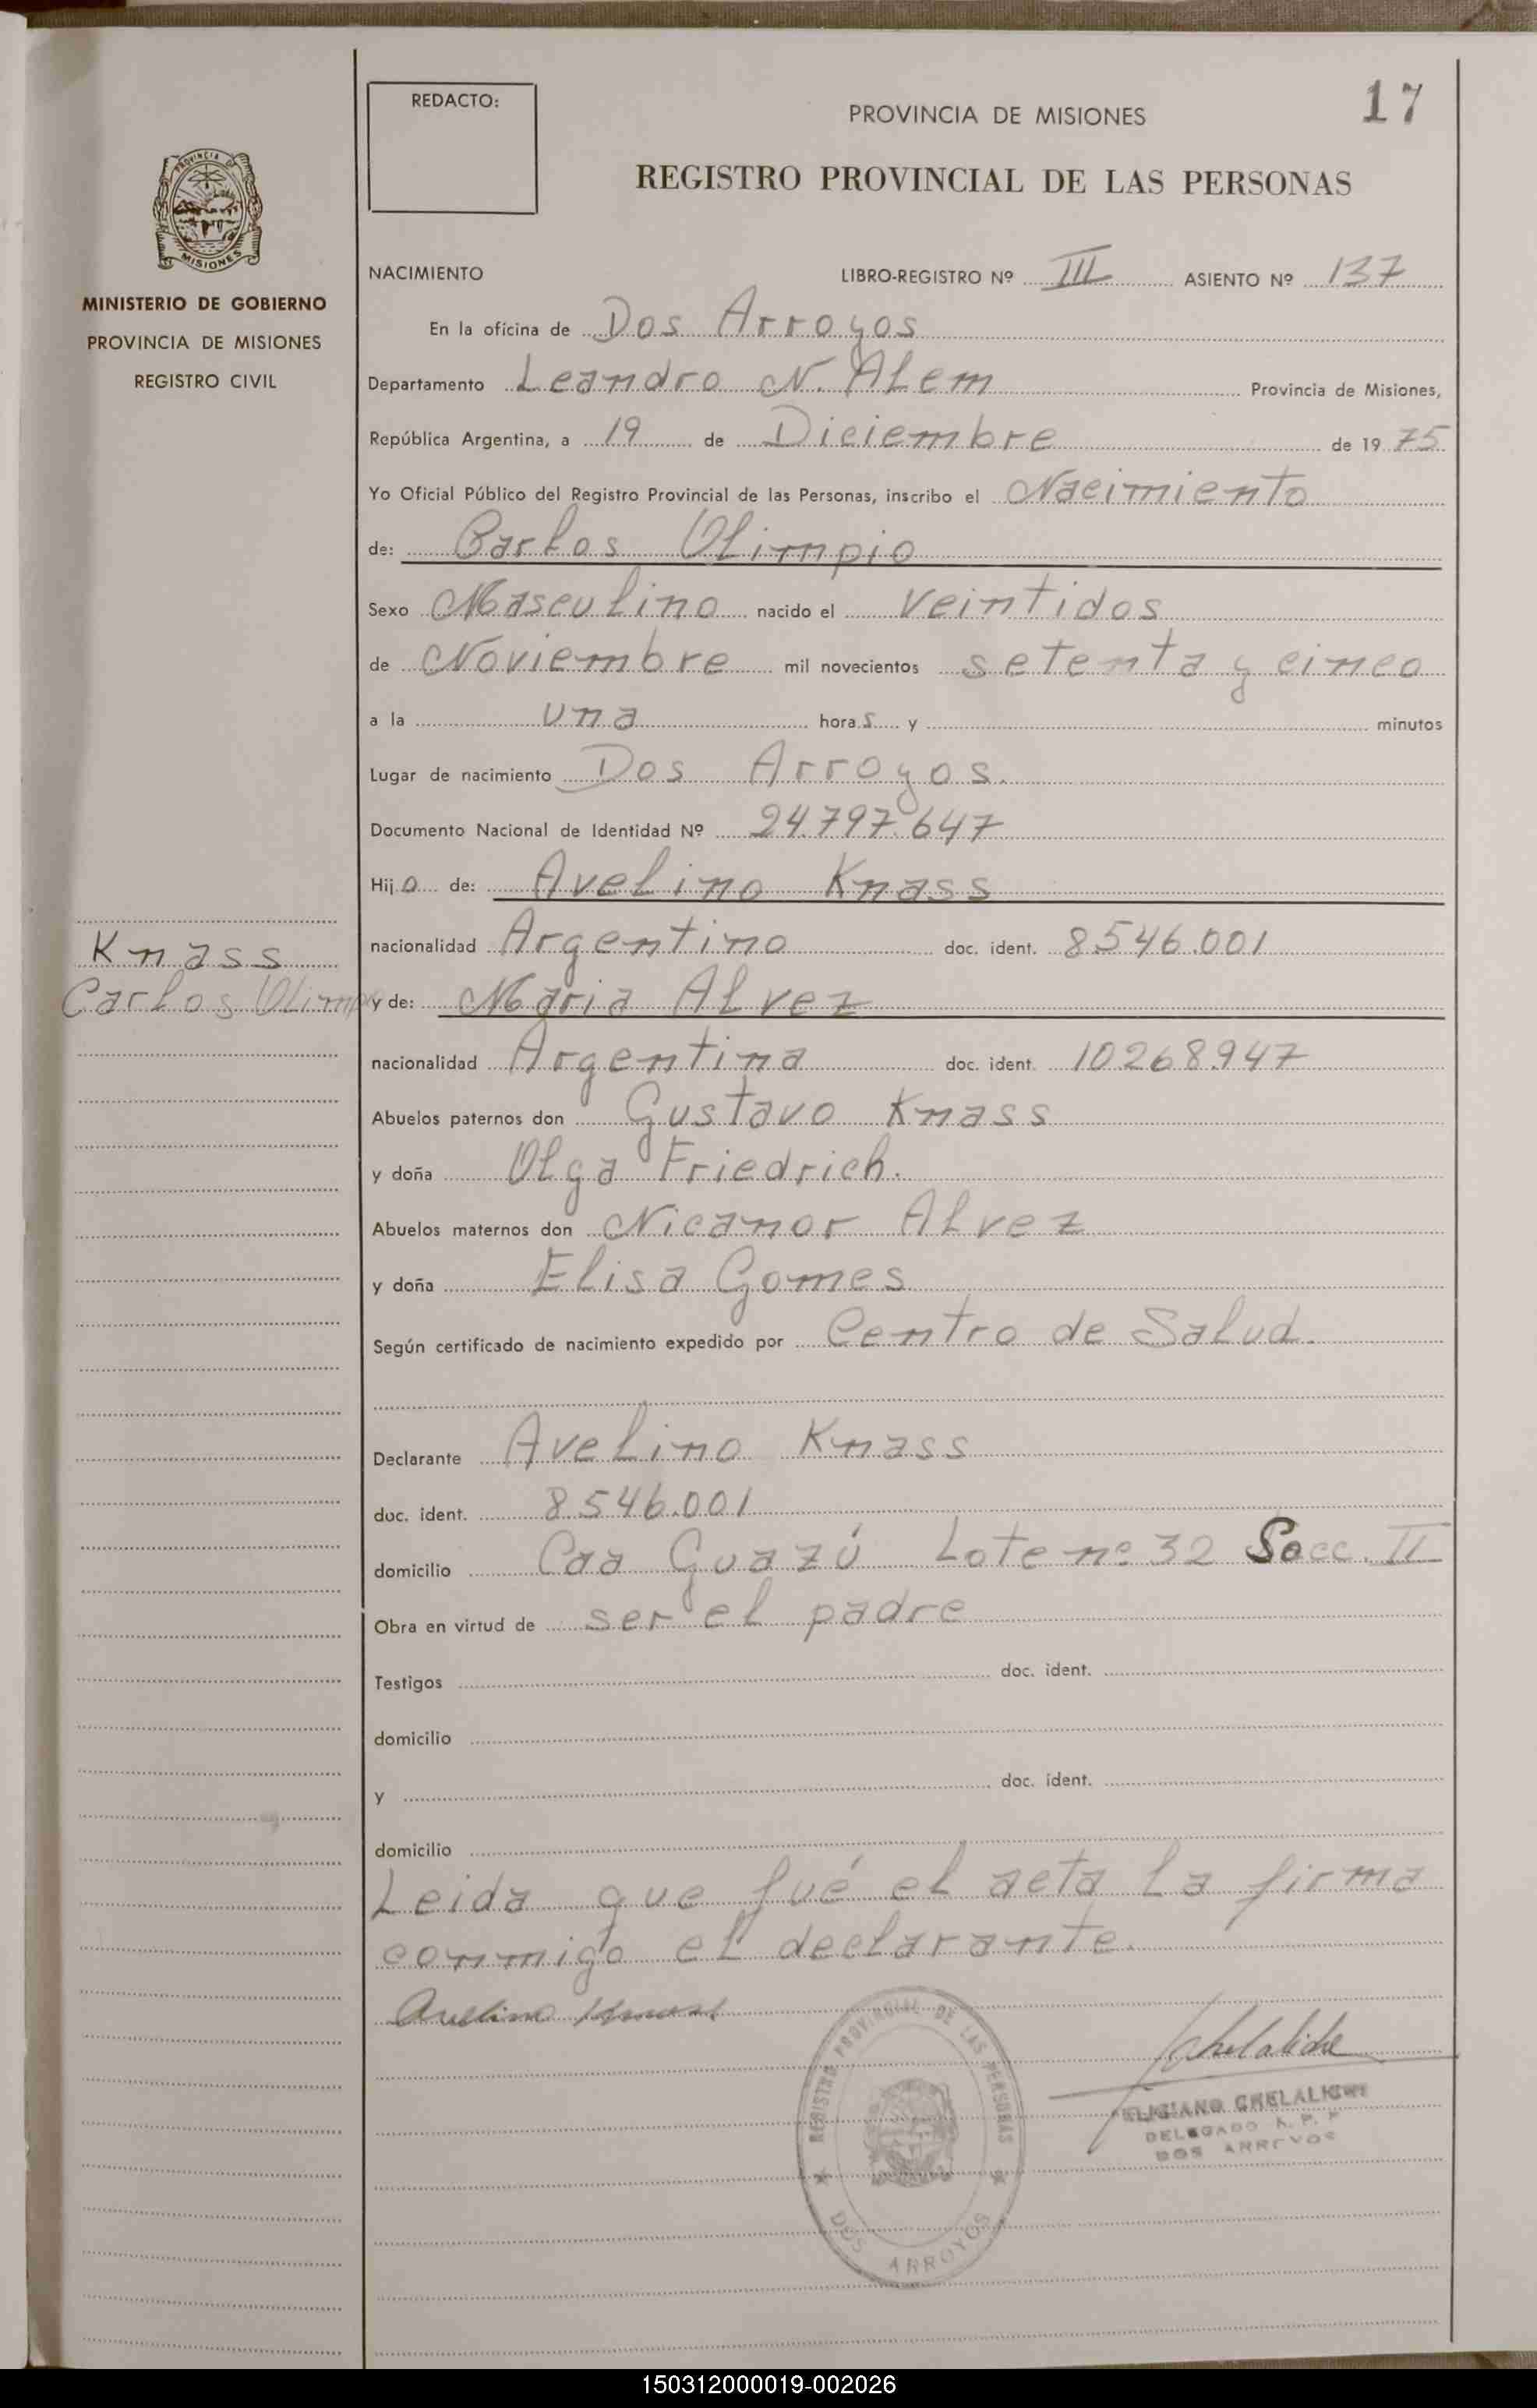 REDACTO:
PROVINCIA DE MISIONES
17
REGISTRO PROVINCIAL DE LAS PERSONAS
PROVINCIA DE
MISIONES
MINISTERIO DE GOBIERNO
PROVINCIA DE MISIONES
REGISTRO CIVIL
NACIMIENTO LIBRO-REGISTRO Nº III ASIENTO Nº 137
En la oficina de Dos Arroyos
Departamento Leandro N. Alem Provincia de Misiones,
República Argentina, a 19 de Diciembre de 1975
Yo Oficial Público del Registro Provincial de las Personas, inscribo el Nacimiento
de: Carlos Olimpio
Sexo Masculino nacido el veintidos
de Noviembre mil novecientos setenta y cinco
a la una horas y minutos
Lugar de nacimiento Dos Arroyos.
Documento Nacional de Identidad Nº 24.797.647
Hijo de: Avelino Knass
nacionalidad Argentino doc. ident. 8546.001
Knass
Carlos Olimpio
y de: Maria Alvez
nacionalidad Argentina doc. ident. 10268.947
Abuelos paternos don Gustavo Knass
y doña Olga Friedrich.
Abuelos maternos don Nicanor Alvez
y doña Elisa Gomes
Según certificado de nacimiento expedido por Centro de Salud.
Declarante Avelino Knass
doc. ident. 8.546.001
domicilio Caa Guazú Lote nº 32 Secc. II
Obra en virtud de ser el padre
Testigos doc. ident.
domicilio
y doc. ident.
domicilio
Leida que fué el acta la firma
conmigo el declarante.
Avelino Knass
REGISTRO PROVINCIAL DE LAS PERSONAS
DOS ARROYOS
Chelaliche
FELICIANO CHELALICHE
DELEGADO R. P. P
DOS ARROYOS
150312000019-002026